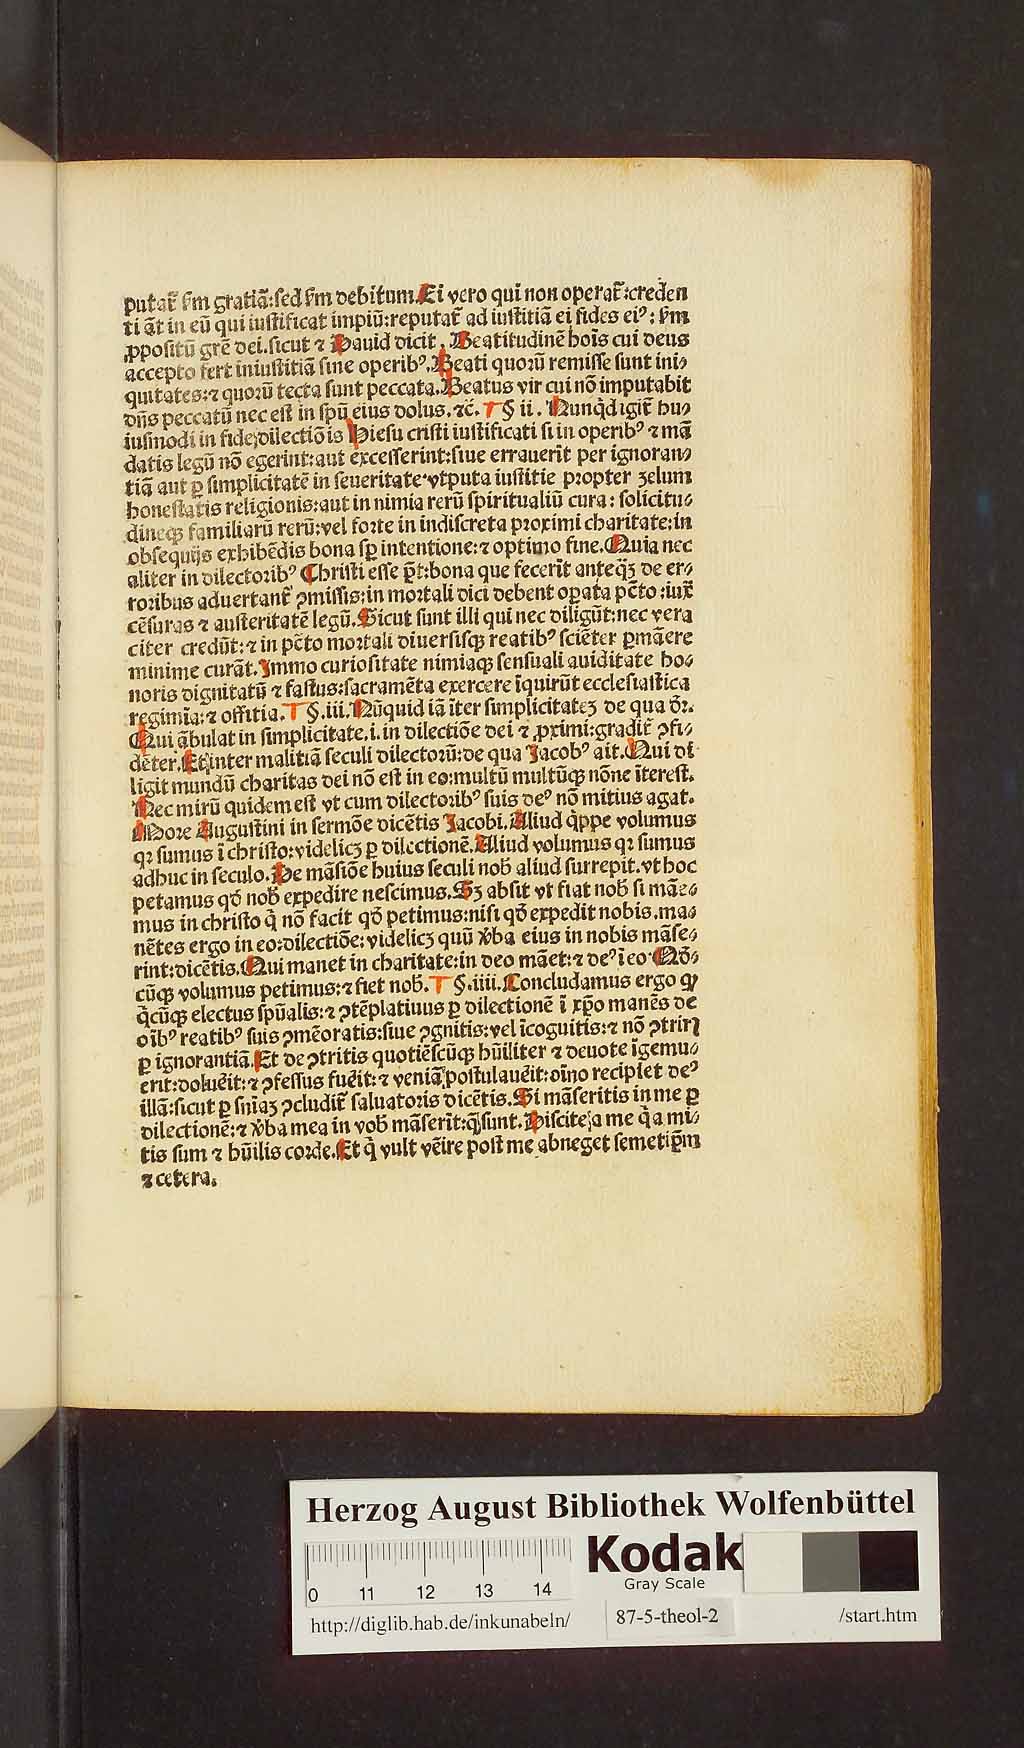 putat᷑ ẜm gratiā:ſed ẜm debitum.Ei vero qui non operat᷑:creden
ti āt in eū qui iuſtificat impiū:reputat᷑ ad iuſtitiā ei fides eiꝰ: ẜm
ꝓpoſitū gr̄e dei.ſicut ⁊ Dauid dicit. Beatitudinē hoīs cui deus
accepto fert iniuſtitiā ſine operibꝰ.Beati quorū remiſſe ſunt ini⸗
quitates:⁊ quorū tecta ſunt peccata.Beatus vir cui nō imputabit
dn̄s peccatū nec eſt in ſpū eius dolus.⁊c̄. § ii. Nunq̇d igit᷑ hu⸗
iuſmodi in fide;dilectiōis Hieſu criſti iuſtificati ſi in operibꝰ ⁊ mā
datis legū nō egerint:aut exceſſerint:ſiue errauerīt per ignoran⸗
tiā aut ꝑ ſimplicitatē in ſeueritate·vtputa iuſtitie propter zelum
honeſtatis religionis:aut in nimia rerū ſpiritualiū cura: ſolicitu⸗
dineqꝫ familiarū rerū:vel forte in indiſcreta proximi charitate:in
obſequijs exhibēdis bona ſꝑ intentione:⁊ optimo fine.Quia nec
aliter in dilectoribꝰ Chriſti eſſe p̄t:bona que fecerīt anteq̄ꝫ de er⸗
roribus aduertant᷑ ꝯmiſſis:in mortali dici debent oꝑata pct̄o :iux̄
cēſuras ⁊ auſteritatē legū.Sicut ſunt illi qui nec diligūt:nec vera
citer credūt:⁊ in pct̄o mortali diuerſiſqꝫ reatibꝰ ſciēter ꝑmāere
minime curāt.Immo curioſitate nimiaqꝫ ſenſuali auiditate ho⸗
noris dignitatū ⁊ faſtus:ſacramēta exercere īquirūt eccleſiaſtica
regimīa:⁊ offitia. §.iii.Nūquid iā īter ſimplicitateꝫ de qua dr̄.
Qui ābulat in ſimplicitate.i.in dilectiōe dei ⁊ ꝓximi:gradit᷑ ꝯfi⸗
dēter.Et inter malitiā ſeculi dilectorū:de qua Jacobꝰ ait.Qui di
ligit mundū charitas dei nō eſt in eo:multū multūqꝫ nōne ītereſt.
Nec mirū quidem eſt vt cum dilectoribꝰ ſuis deꝰ nō mitius agat.
More Auguſtini in ſermōe dicētis Jacobi.Aliud q̇ppe volumus
qꝛ ſumus ī chriſto:videlicꝫ ꝑ dilectionē.Aliud volumus qꝛ ſumus
adhuc in ſeculo.De māſiōe huius ſeculi nob̄ aliud ſurrepit.vt hoc
petamus qd̄ nob̄ expedire neſcimus.Sꝫ abſit vt fiat nob̄ ſi māea⸗
mus in chriſto q̇ nō facit qd̄ petimus:niſi qd̄ expedit nobis.ma⸗
nētes ergo in eo:dilectiōe:videlicꝫ quū v̄ba eius in nobis māſe⸗
rint:dicētis.Qui manet in charitate:in deo māet:⁊ deꝰ ī eo·Qd̄⸗
cūqꝫ volumus petimus:⁊ fiet nob̄. §.iiii.Concludamus ergo ꝙ
q̇cūqꝫ electus ſpūalis:⁊ ꝯtēplatiuus ꝑ dilectionē ī xp̄o manēs de
oībꝰ reatibꝰ ſuis ꝯmēoratis:ſiue ꝯgnitis:vel īcoguitis:⁊ nō ꝯtrit
ꝑ ignorantiā.Et de ꝯtritis quotiēſcūqꝫ hūiliter ⁊ deuote īgemu⸗
erit:doluēit:⁊ ꝯfeſſus fuēit:⁊ veniā poſtulauēit:oīno recipiet deꝰ
illā:ſicut ꝑ ſniāꝫ ꝯcludit᷑ ſaluatoris dicētis.Si māſeritis in me ꝑ
dilectionē:⁊ v̄ba mea in vob̄ māſerīt:q̄ſunt.Diſcite a me q̇a mi⸗
tis ſum ⁊ hūilis corde.Et q̇ vult vēire poſt me abneget ſemetip̄m
⁊ cetera.
Herzog August Bibliothek Wolfenbüttel
Kodak
Gray Scale
0 11 12 13 14
http://diglib.hab.de/inkunabeln/ 87-5-theol-2 /start.htm